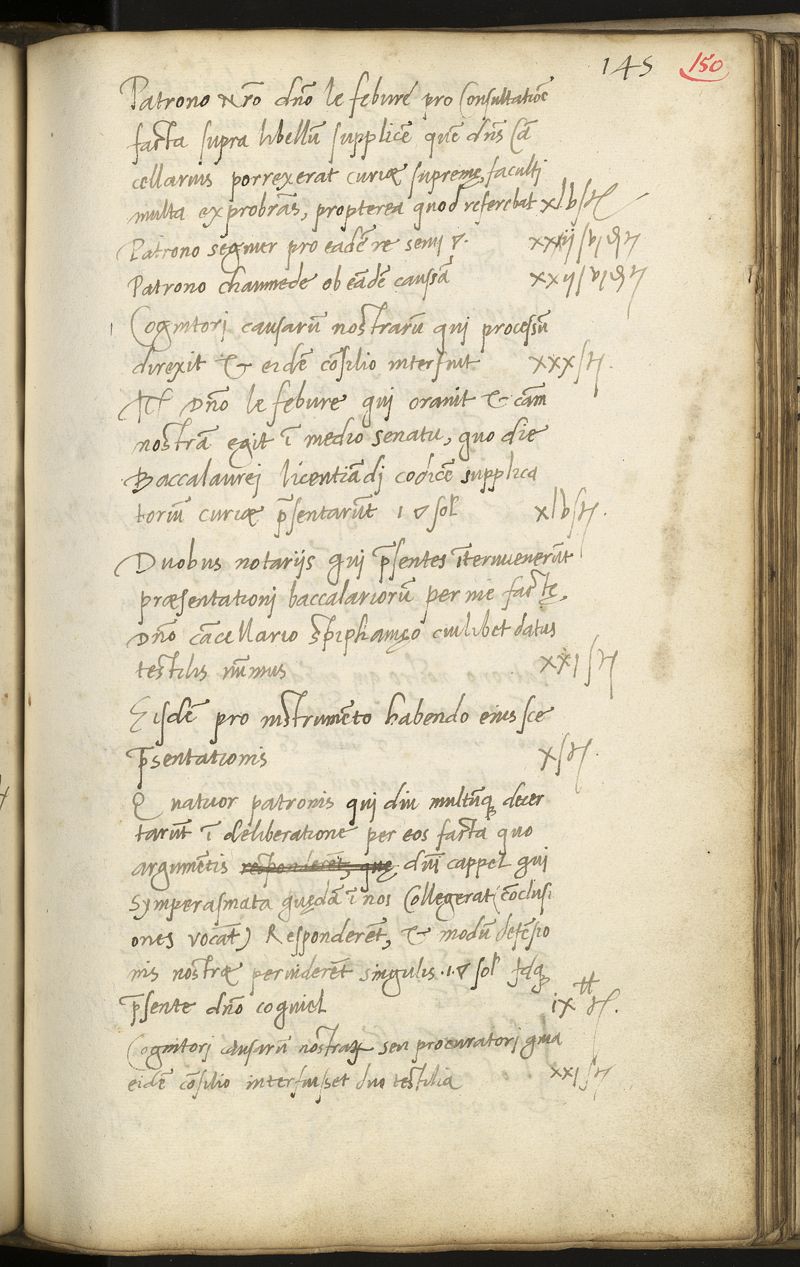 145 150
Patrono nr̃o dño le febure pro Consultatiõe
facta supra libellũ supplicẽ quẽ dñs Cã
cellarius porrexerat curiæ supremę, faculti
multa exprobrãs, propterea quod referebat xlv s t
Patrono seguier pro eadẽ re semi
Patrono chaumede ob eãdẽ caussã
Cognitori causarũ nostrarũ qui processũ
direxit & eidẽ cõsilio interfuit xxx s t.
Dño le febure qui orauit & cãm
nostrã egit ĩ medio senatu, quo die
Baccalaurej licentiãdj codicẽ supplica
toriũ curiæ p̃sentarũt 1 sol xlv s t.
Duobus notarijs qui p̃sentes ĩteruuenerũt
præsentationj baccalariorũ per me factę
Dño cãcellario cuilibet datus
testilis nũmus xxi s t
Eisdẽ pro instrumẽto habendo eius sce
p̃sentationis x s t.
Quatuor patronis qui diu multũq decer
tarũt ĩ deliberatione per eos facta quo
argumẽtis responderẽt, quę dñi cappel qui
Symperasmata quędã ĩ nos Collegerat (cõclusi
ones vocãt) Responderẽt, & modũ defẽsio
nis nostræ peruiderẽt singulis .1. sol idq
p̃sente dño coquiel ix tt t.
Cognitorj causarũ nostraꝝ seu procuratorj quia
eidẽ cõsilio interfuisset duo testilia xxi s t